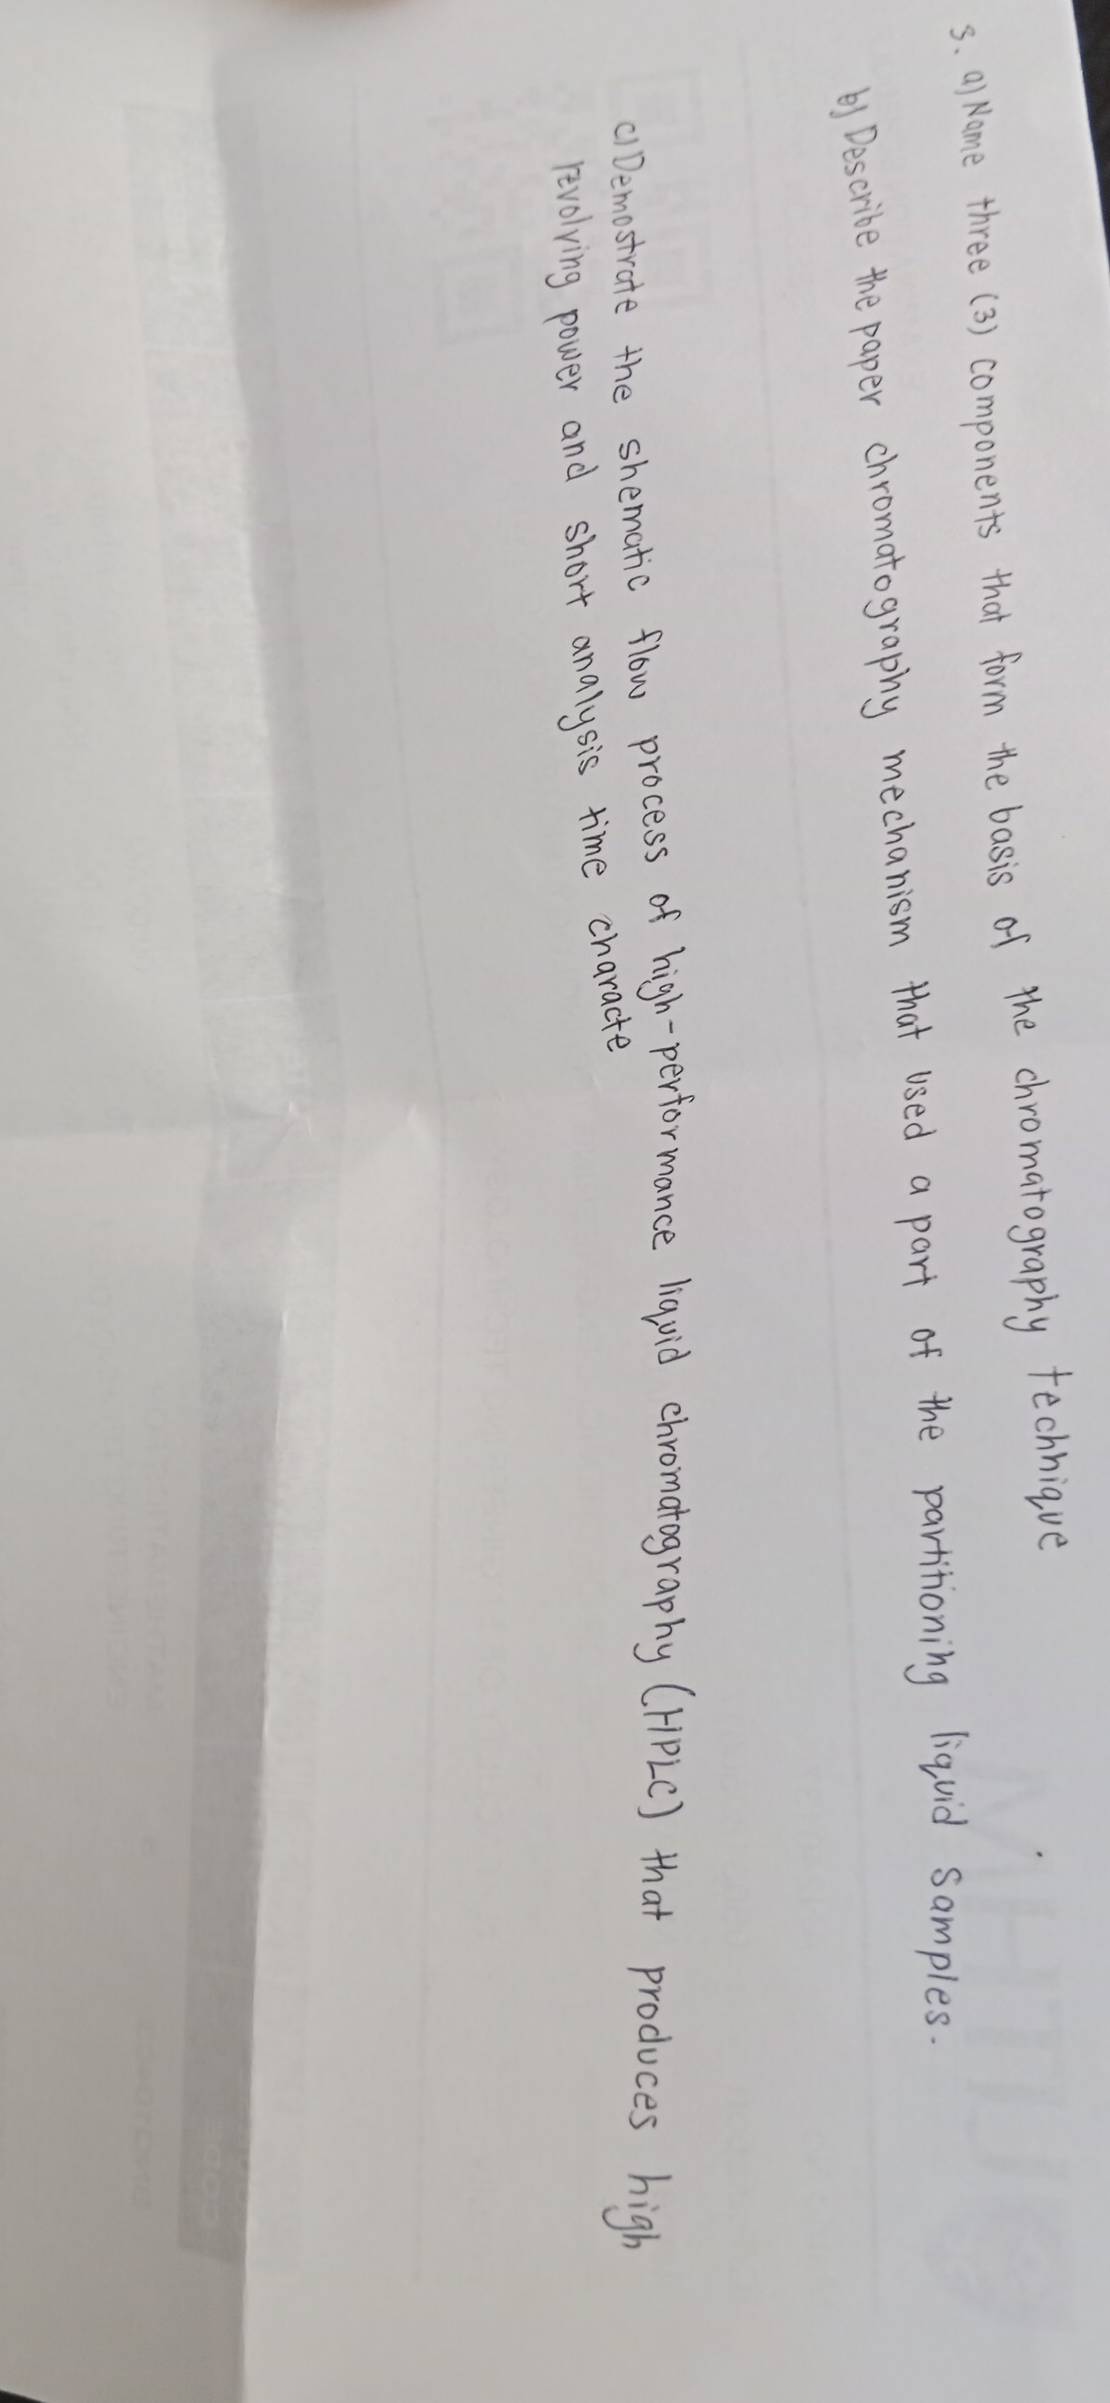 3. a) Name three (3) components that form the basis of the chromatography technique
b) Describe the paper chromatography mechanism that used a part of the partitioning liquid samples.
c) Demostrate the shematic flow process of high-performance liquid chromatography (HPLC) that produces high
revolving power and short analysis time characte